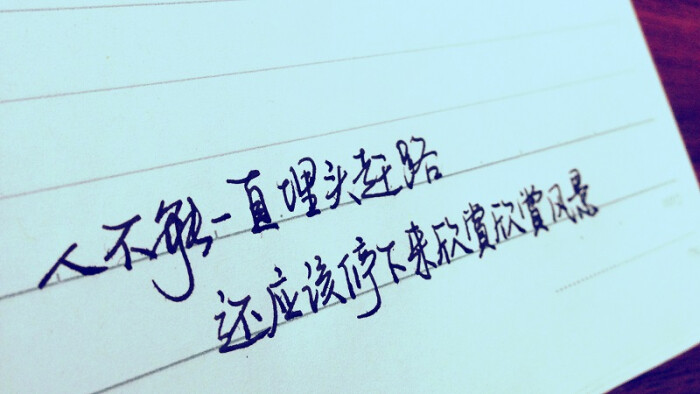 人不能一直埋头赶路
还应该停下来欣赏欣赏风景